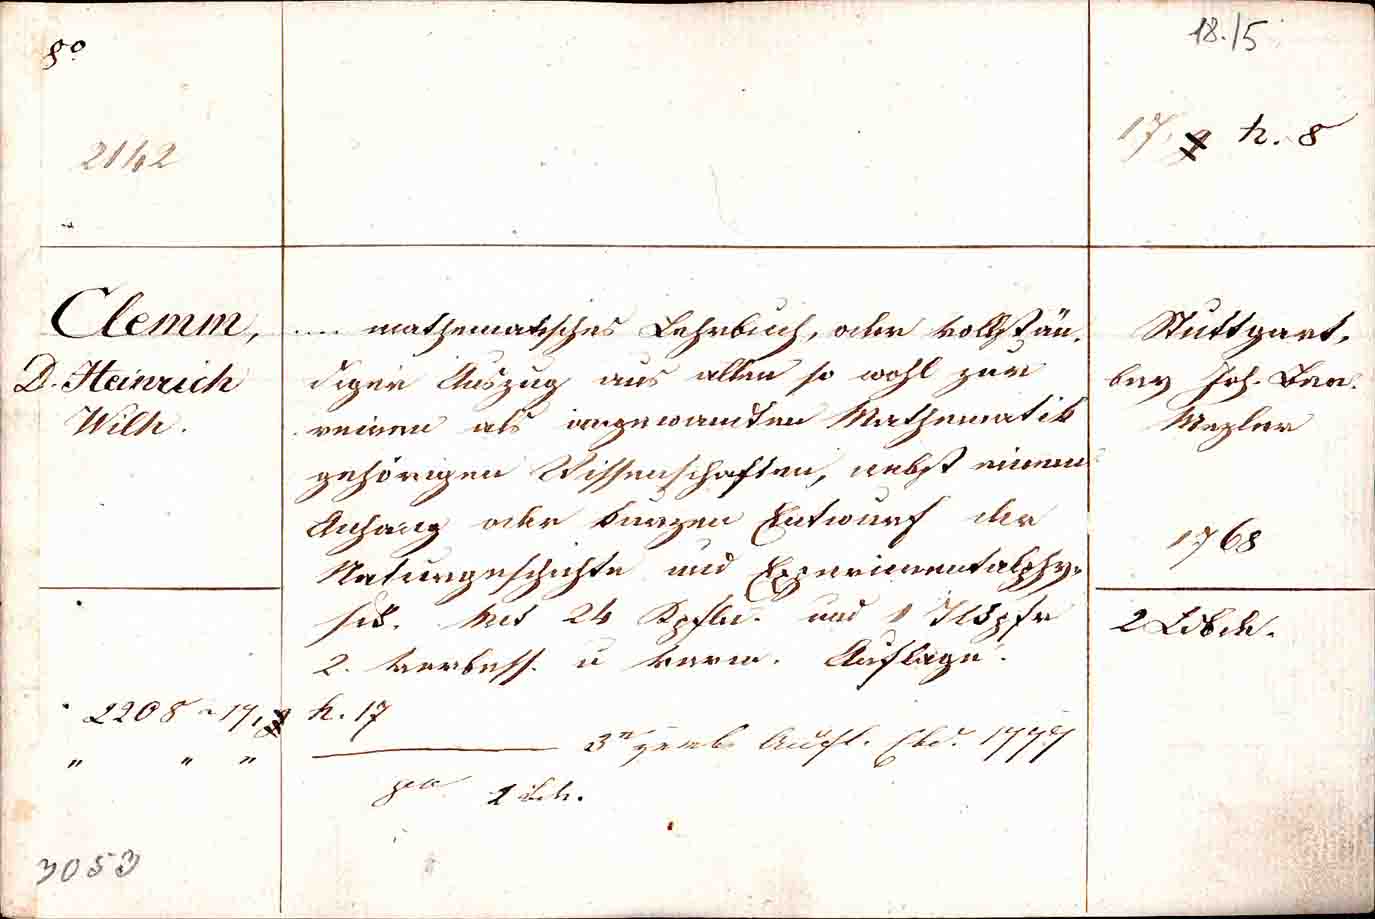 8o
18./5
2142
17, h. 8
Clemm, .... mathematisches Lehrbuch, oder vollstän- Stuttgart,
D. Heinrich diger Auszug aus allen so wohl zur bey Joh. Ben.
Wilh. reinen als angewandten Mathematik Mezler
gehörigen Wissenschaften, nebst einem
Anhang oder kurzen Entwurf der 1768
Naturgeschichte und Experimentalphy-
sik. Mit 24 Kpfln. und 1 Tlkpfr 2 Ldbde.
2. verbess. u verm. Auflage.
2208 17, h. 17
3te verb. Aufl. Ebd. 1777
" " " 8o 1 Bd.
3053